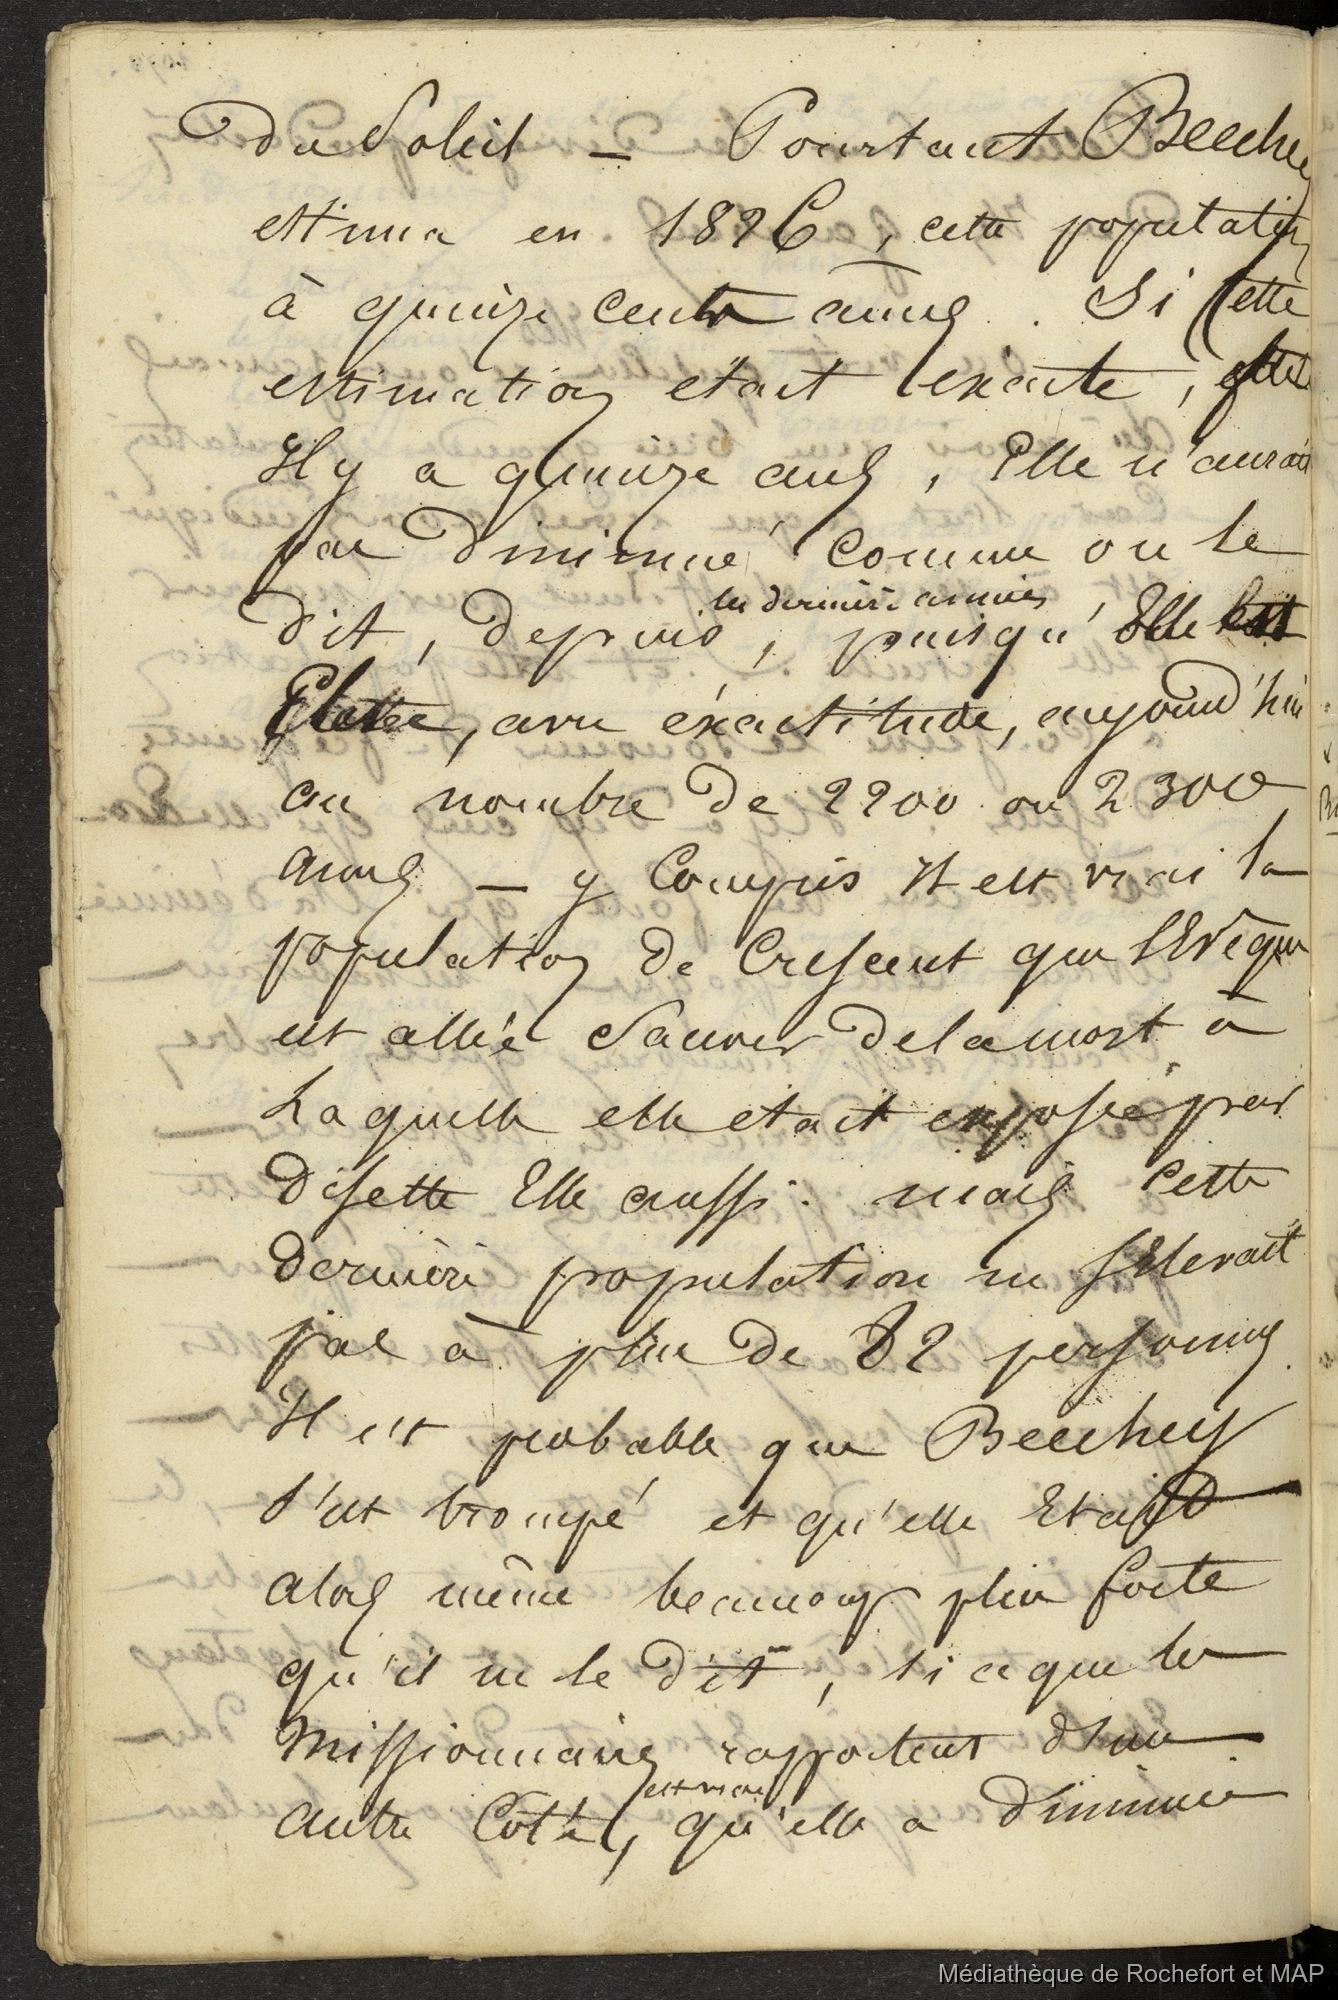 du Soleil — Pourtant Beechey
estima en 1826, cette population
à quinze cents âmes. Si cette
estimation était exacte,
Il y a quinze ans, Elle n'aurait
pas diminué comme on le
dit, depuis les dernières années, puisqu'Elle est
avec éxactitude, aujourd'hui
au nombre de 2200 ou 2300
âmes — y Compris il est vrai la
population de Crescent que l'Evêque
est allée Sauver de la mort à
Laquelle elle etait exposée par
disette Elle aussi. mais cette
dernière population ne s'Elevait
pas à plus de 82 personnes
Il est probable que Beechey
s'est trompé et qu'elle Etait
alors même beaucoup plus forte
qu'il ne le dit, si ce que les
Missionnaires rapportent d'un
autre Coté, est vrai qu'elle a diminué
Médiathèque de Rochefort et MAP